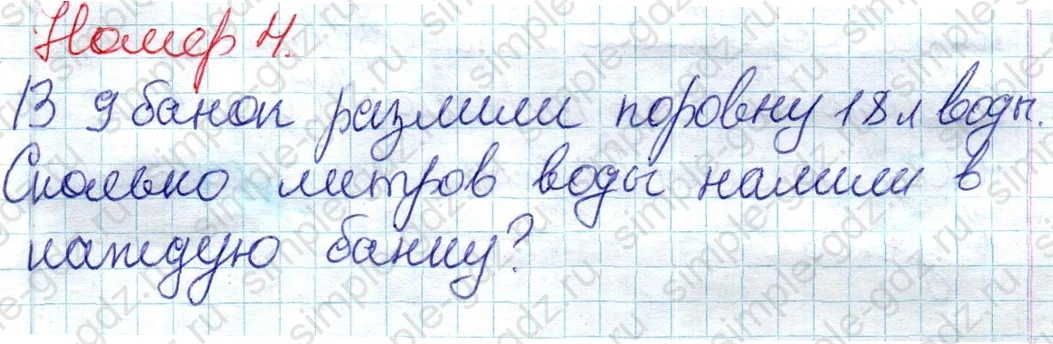 Номер 4.
В 9 банок разлили поровну 18 л воды.
Сколько литров воды налили в
каждую банку?